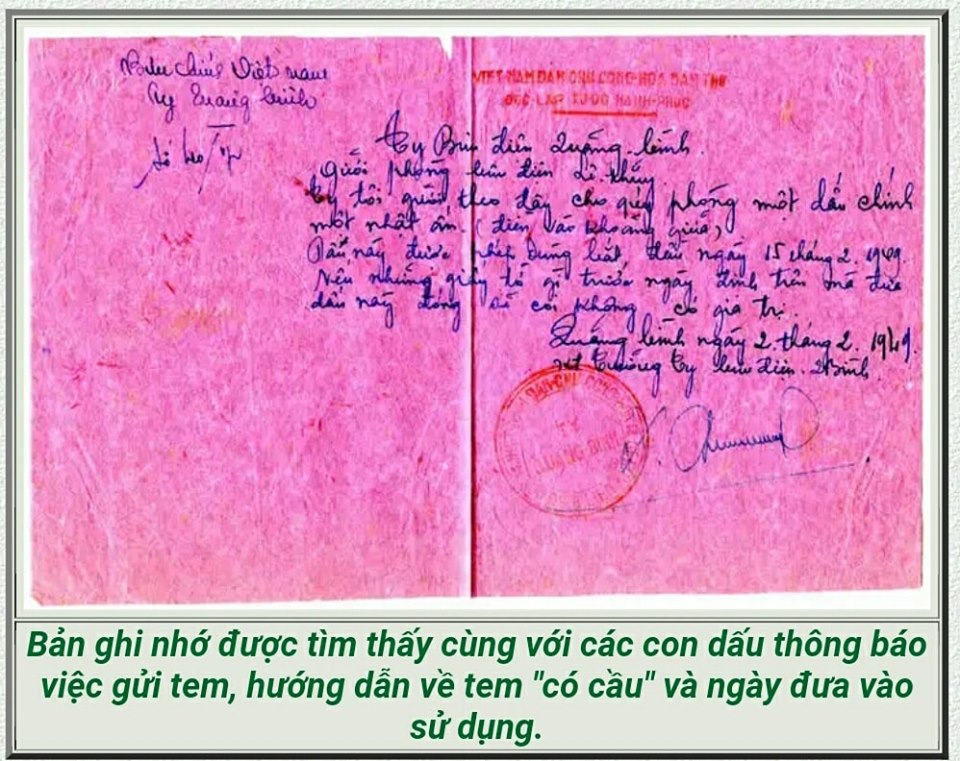 Bưu chính Việt nam
Ty Quảng bình
Số 420/
VIET-NAM DAN CHU CONG-HOA NAM THU
DOC-LAP TU-DO HANH-PHUC
Ty Bưu điện Quảng-bình
Gửi phòng bưu điện
Ty tôi gửi theo đây cho quý phòng một dấu chính
một nhật ấn (điền vào khoảng giữa)
Dấu này được phép dùng bắt đầu ngày 15 tháng 2. 1949.
Nếu những giấy tờ gì trước ngày định trên mà đưa
dấu này đóng sẽ coi không có giá trị.
Quảng bình ngày 2. tháng 2. 1949.
Trưởng Ty bưu điện QBình
DAN-CHU CONG
TY
QUANG BINH
Bản ghi nhớ được tìm thấy cùng với các con dấu thông báo
việc gửi tem, hướng dẫn về tem "có cầu" và ngày đưa vào
sử dụng.